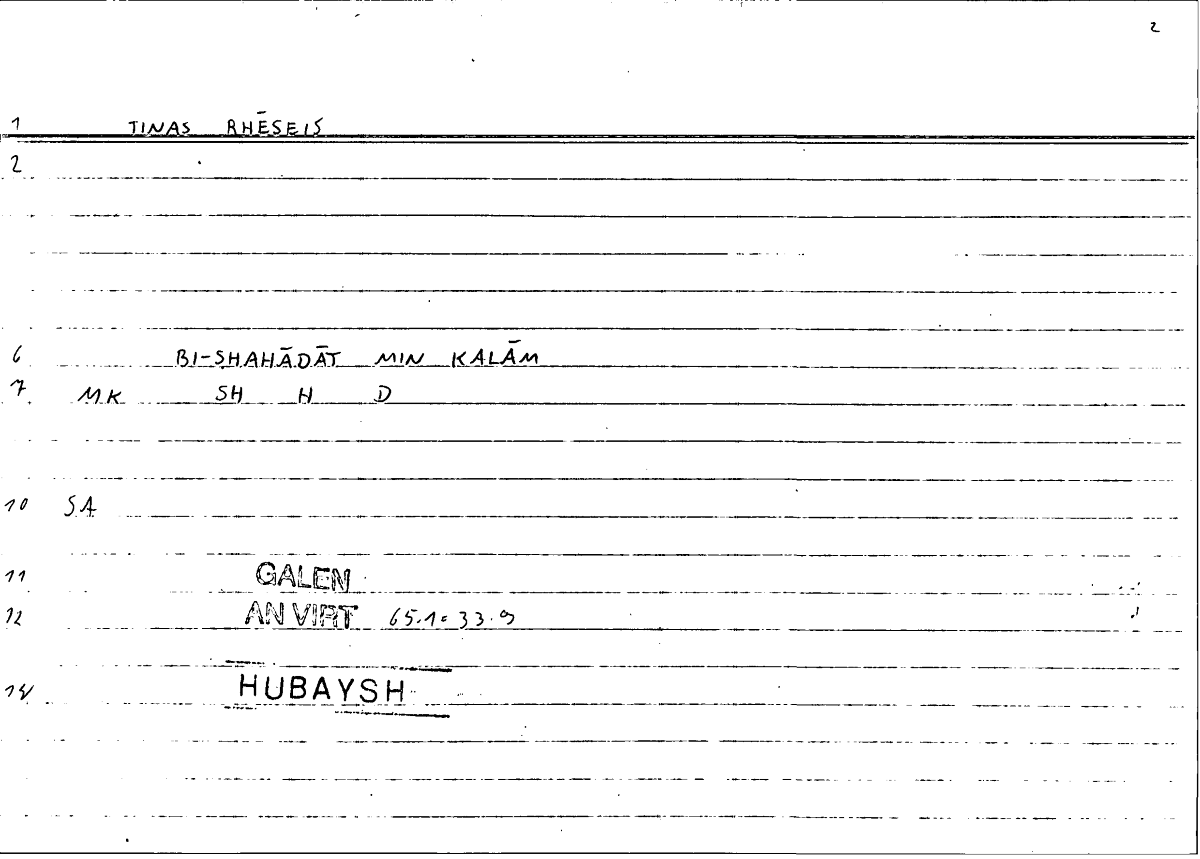 2
1 TINAS RHĒSEIS
2
6 BI-SHAHĀDĀT MIN KALĀM
7 MK SH H D
10 SA
11 GALEN
12 AN VIRT 65.1= 33.9
14 HUBAYSH